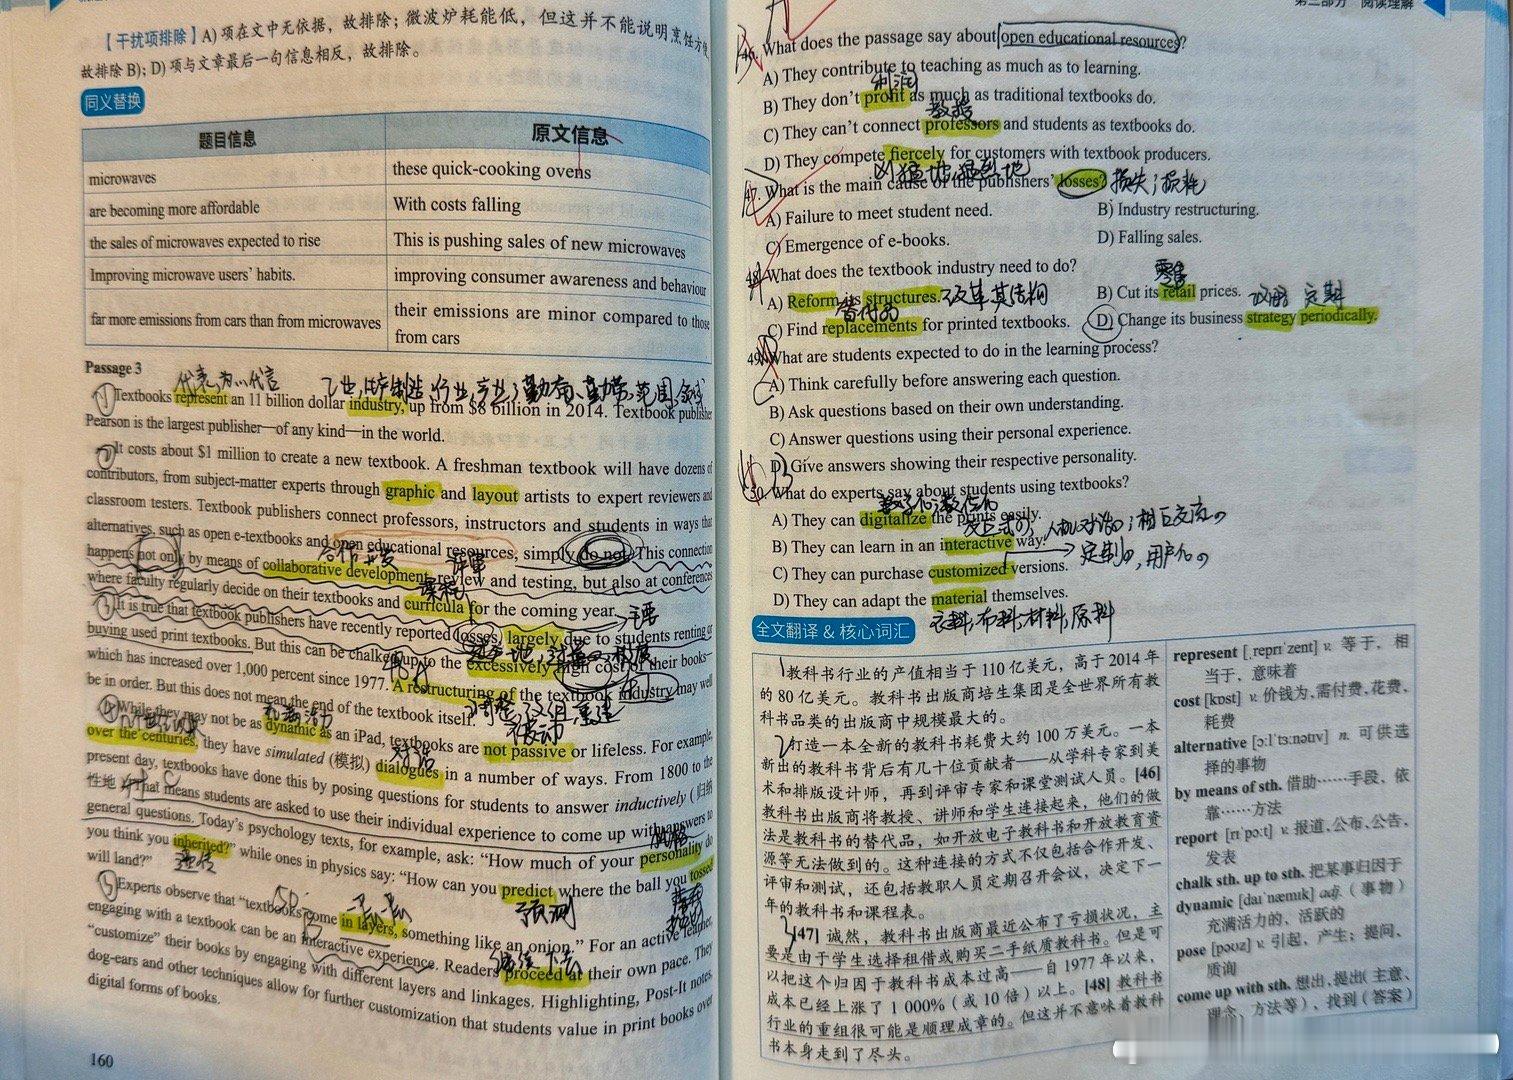 【干扰项排除】A)项在文中无依据，故排除；微波炉耗能低，但这并不能说明烹饪方便，
故排除B)；D)项与文章最后一句信息相反，故排除。
同义替换
题目信息 原文信息
microwaves these quick-cooking ovens
are becoming more affordable With costs falling
the sales of microwaves expected to rise This is pushing sales of new microwaves
Improving microwave users' habits. improving consumer awareness and behaviour
far more emissions from cars than from microwaves their emissions are minor compared to those
from cars
Passage 3
代表,为…代言
①Textbooks represent an 11 billion dollar industry, up from $8 billion in 2014. Textbook publisher
Pearson is the largest publisher—of any kind—in the world.
②It costs about $1 million to create a new textbook. A freshman textbook will have dozens of
contributors, from subject-matter experts through graphic and layout artists to expert reviewers and
classroom testers. Textbook publishers connect professors, instructors and students in ways that
alternatives, such as open e-textbooks and open educational resources, simply do not. This connection
合作开发
happens not only by means of collaborative development, review and testing, but also at conferences
课程
where faculty regularly decide on their textbooks and curricula for the coming year.
主要
③It is true that textbook publishers have recently reported losses, largely due to students renting or
buying used print textbooks. But this can be chalked up to the excessively high cost of their books—
which has increased over 1,000 percent since 1977. A restructuring of the textbook industry may well
be in order. But this does not mean the end of the textbook itself.
④While they may not be as dynamic as an iPad, textbooks are not passive or lifeless. For example,
被动
对话
over the centuries, they have simulated (模拟) dialogues in a number of ways. From 1800 to the
present day, textbooks have done this by posing questions for students to answer inductively (归纳
性地). That means students are asked to use their individual experience to come up with answers to
general questions. Today's psychology texts, for example, ask: "How much of your personality do
you think you inherited?" while ones in physics say: "How can you predict where the ball you tossed
will land?" 遗传
预测
⑤Experts observe that "textbooks come in layers, something like an onion." For an active learner,
engaging with a textbook can be an interactive experience. Readers proceed at their own pace. They
"customize" their books by engaging with different layers and linkages. Highlighting, Post-It notes,
dog-ears and other techniques allow for further customization that students value in print books over
digital forms of books.
160
第三部分 阅读理解
46. What does the passage say about open educational resources?
A) They contribute to teaching as much as to learning.
利润
B) They don't profit as much as traditional textbooks do.
教授
C) They can't connect professors and students as textbooks do.
D) They compete fiercely for customers with textbook producers.
凶猛地,猛烈地
47. What is the main cause of the publishers' losses? 损失;损耗
A) Failure to meet student need. B) Industry restructuring.
C) Emergence of e-books. D) Falling sales.
48. What does the textbook industry need to do?
零售
A) Reform its structures. 改革其结构 B) Cut its retail prices.
替代品 战略 定期
C) Find replacements for printed textbooks. D) Change its business strategy periodically.
49. What are students expected to do in the learning process?
A) Think carefully before answering each question.
B) Ask questions based on their own understanding.
C) Answer questions using their personal experience.
D) Give answers showing their respective personality.
50. What do experts say about students using textbooks?
数字化;数位化
A) They can digitalize the prints easily.
B) They can learn in an interactive way. 人机对话的;相互交流的
C) They can purchase customized versions. 定制的,用户化的
D) They can adapt the material themselves.
衣料,布料;材料,原料
全文翻译 & 核心词汇
教科书行业的产值相当于110亿美元，高于2014年
的80亿美元。教科书出版商培生集团是全世界所有教
科书品类的出版商中规模最大的。
打造一本全新的教科书耗费大约100万美元。一本
新出的教科书背后有几十位贡献者——从学科专家到美
术和排版设计师，再到评审专家和课堂测试人员。[46]
教科书出版商将教授、讲师和学生连接起来，他们的做
法是教科书的替代品，如开放电子教科书和开放教育资
源等无法做到的。这种连接的方式不仅包括合作开发、
评审和测试，还包括教职人员定期召开会议，决定下一
年的教科书和课程表。
[47] 诚然，教科书出版商最近公布了亏损状况，主
要是由于学生选择租借或购买二手纸质教科书。但是可
以把这个归因于教科书成本过高——自1977年以来，
成本已经上涨了1 000%（或10倍）以上。[48] 教科书
行业的重组很可能是顺理成章的。但这并不意味着教科
书本身走到了尽头。
represent [ˌreprɪˈzent] v. 等于，相
当于，意味着
cost [kɒst] v. 价钱为，需付费，花费，
耗费
alternative [ɔːlˈtɜːnətɪv] n. 可供选
择的事物
by means of sth. 借助……手段、依
靠……方法
report [rɪˈpɔːt] v. 报道，公布，公告，
发表
chalk sth. up to sth. 把某事归因于
dynamic [daɪˈnæmɪk] adj.（事物）
充满活力的、活跃的
pose [pəʊz] v. 引起，产生；提问、
质询
come up with sth. 想出，提出（主意、
理念、方法等），找到（答案）